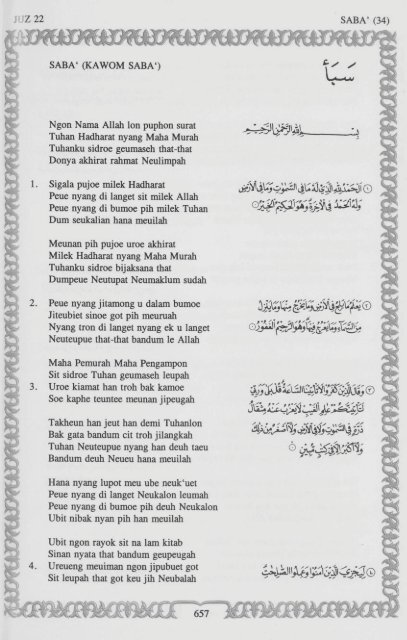 JUZ 22
SABA' (34)
SABA' (KAWOM SABA')
سَبَأ
Ngon Nama Allah lon puphon surat
Tuhan Hadharat nyang Maha Murah
Tuhanku sidroe geumaseh that-that
Donya akhirat rahmat Neulimpah
بِسْمِ اللَّهِ الرَّحْمَٰنِ الرَّحِيمِ
1. Sigala pujoe milek Hadharat
Peue nyang di langet sit milek Allah
Peue nyang di bumoe pih milek Tuhan
Dum seukalian hana meuilah
Meunan pih pujoe uroe akhirat
Milek Hadharat nyang Maha Murah
Tuhanku sidroe bijaksana that
Dumpeue Neutupat Neumaklum sudah
① الْحَمْدُ لِلَّهِ الَّذِي لَهُ مَا فِي السَّمٰوٰتِ وَمَا فِي الْأَرْضِ
وَلَهُ الْحَمْدُ فِي الْآخِرَةِ وَهُوَ الْحَكِيمُ الْخَبِيرُ
2. Peue nyang jitamong u dalam bumoe
Jiteubiet sinoe got pih meuruah
Nyang tron di langet nyang ek u langet
Neuteupue that-that bandum le Allah
Maha Pemurah Maha Pengampon
Sit sidroe Tuhan geumaseh leupah
② يَعْلَمُ مَا يَلِجُ فِي الْأَرْضِ وَمَا يَخْرُجُ مِنْهَا وَمَا يَنْزِلُ
مِنَ السَّمَاءِ وَمَا يَعْرُجُ فِيهَا وَهُوَ الرَّحِيمُ الْغَفُورُ
3. Uroe kiamat han troh bak kamoe
Soe kaphe teuntee meunan jipeugah
Takheun han jeut han demi Tuhanlon
Bak gata bandum cit troh jilangkah
Tuhan Neuteupue nyang han deuh taeu
Bandum deuh Neueu hana meuilah
Hana nyang lupot meu ube neuk'uet
Peue nyang di langet Neukalon leumah
Peue nyang di bumoe pih deuh Neukalon
Ubit nibak nyan pih han meuilah
Ubit ngon rayok sit na lam kitab
Sinan nyata that bandum geupeugah
③ وَقَالَ الَّذِينَ كَفَرُوا لَا تَأْتِينَا السَّاعَةُ قُلْ بَلَىٰ وَرَبِّي
لَتَأْتِيَنَّكُمْ عٰلِمِ الْغَيْبِ لَا يَعْزُبُ عَنْهُ مِثْقَالُ
ذَرَّةٍ فِي السَّمٰوٰتِ وَلَا فِي الْأَرْضِ وَلَا أَصْغَرُ مِنْ ذٰلِكَ
وَلَا أَكْبَرُ إِلَّا فِي كِتٰبٍ مُبِينٍ
4. Ureueng meuiman ngon jipubuet got
Sit leupah that got keu jih Neubalah
④ لِيَجْزِيَ الَّذِينَ آمَنُوا وَعَمِلُوا الصّٰلِحٰتِ
657